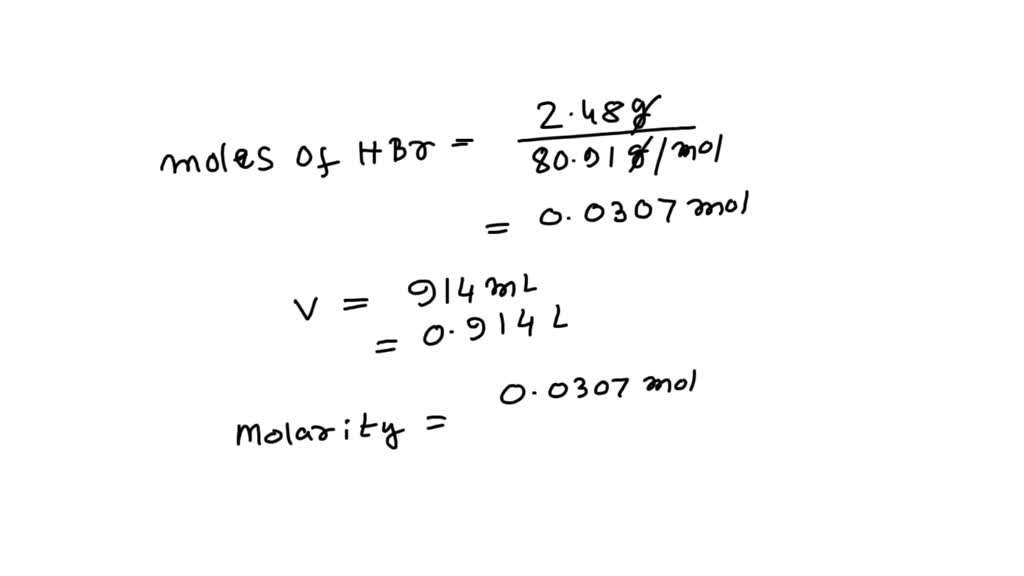 moles of HBr = 2.48 g / 80.91 g/mol
= 0.0307 mol
V = 914 mL
= 0.914 L
Molarity = 0.0307 mol